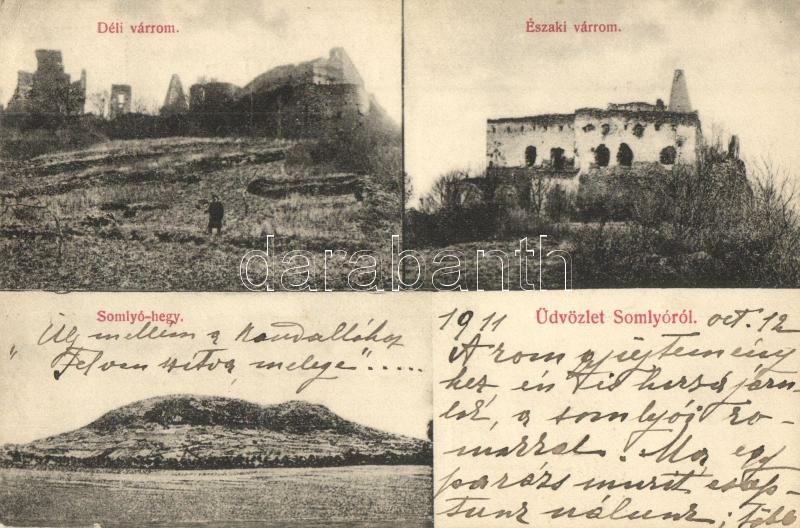 Déli várrom.
Északi várrom.
darabanth
Somlyó-hegy.
"Ülj mellém a kandallóhoz
Felvan szitva melege".....
1911 Üdvözlet Somlyóról. oct. 12
A rom gyüjtemény
hez én is hozzájáru
lok, a somlyói ro-
mokkal. Ma egy
parázs murit csap-
tunk nálunk. Több